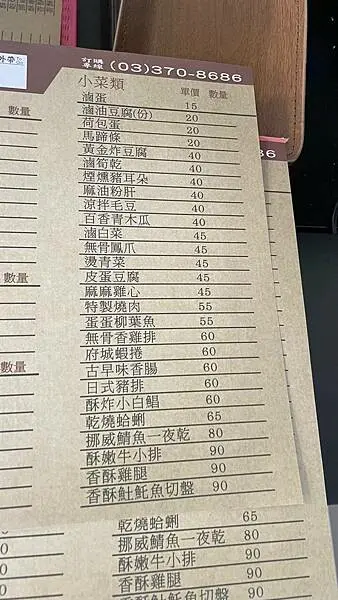 外帶
訂購專線 (03)370-8686
小菜類 單價 數量
滷蛋 15
滷油豆腐(份) 20
荷包蛋 20
馬蹄條 20
黃金炸豆腐 40
滷筍乾 40
煙燻豬耳朵 40
麻油粉肝 40
涼拌毛豆 40
百香青木瓜 40
滷白菜 45
無骨鳳爪 45
燙青菜 45
皮蛋豆腐 45
麻麻雞心 45
特製燒肉 55
蛋蛋柳葉魚 55
無骨香雞排 60
府城蝦捲 60
古早味香腸 60
日式豬排 60
酥炸小白鯧 60
乾燒蛤蜊 65
挪威鯖魚一夜乾 80
酥嫩牛小排 90
香酥雞腿 90
香酥魠魠魚切盤 90
數量
數量
數量
86
乾燒蛤蜊 65
挪威鯖魚一夜乾 80
酥嫩牛小排 90
香酥雞腿 90
90